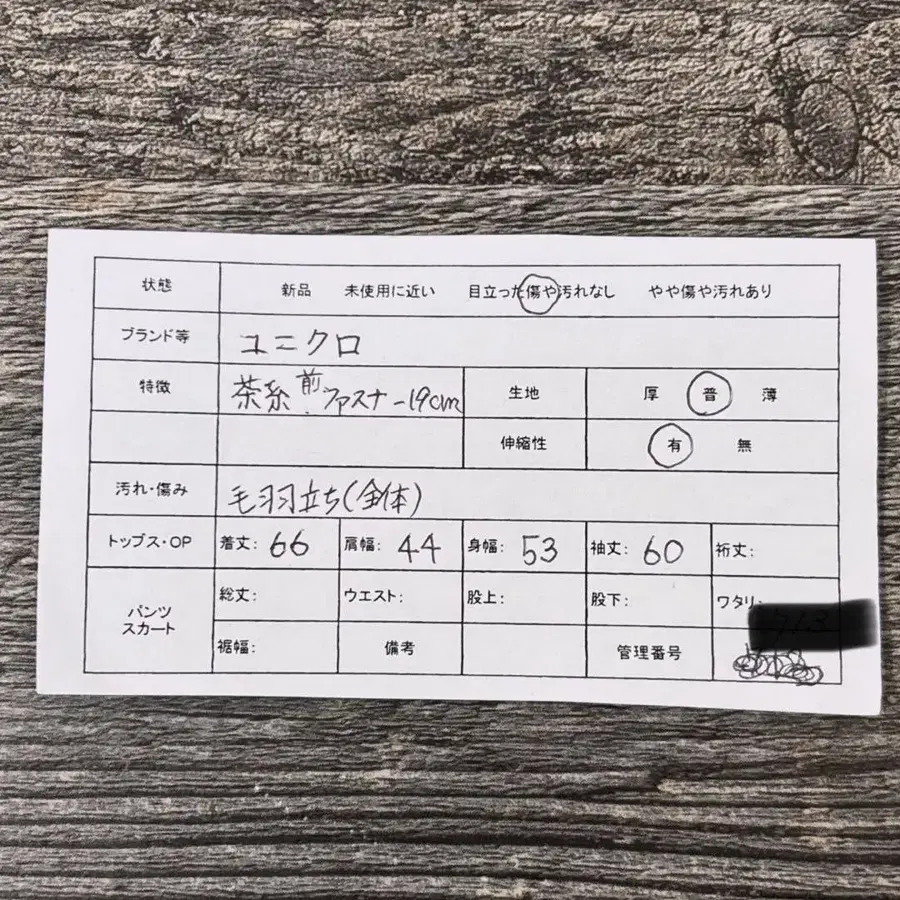 状態 新品 未使用に近い 目立った傷や汚れなし やや傷や汚れあり
ブランド等 ユニクロ
特徴 茶系 前ファスナー19cm 生地 厚 普 薄
伸縮性 有 無
汚れ・傷み 毛羽立ち(全体)
トップス・OP 着丈: 66 肩幅: 44 身幅: 53 袖丈: 60 裄丈:
パンツ スカート 総丈: ウエスト: 股上: 股下: ワタリ:
裾幅: 備考 管理番号